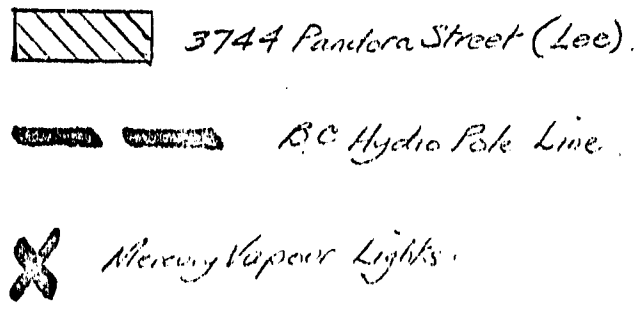 3744 Pandora Street (Lee).
B.C Hydro Pole Line.
Mercury Vapour Lights.